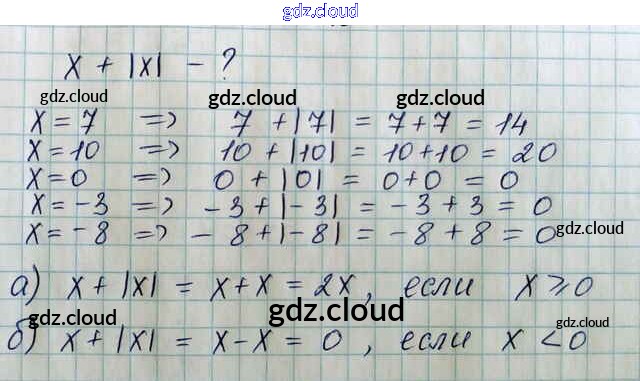 gdz.cloud
x + |x| - ?
gdz.cloud gdz.cloud gdz.cloud
x = 7 => 7 + |7| = 7+7 = 14
x = 10 => 10 + |10| = 10+10 = 20
x = 0 => 0 + |0| = 0+0 = 0
x = -3 => -3 + |-3| = -3 + 3 = 0
x = -8 => -8 + |-8| = -8 + 8 = 0
gdz.cloud
а) x + |x| = x + x = 2x, если x ⩾ 0
gdz.cloud gdz.cloud gdz.cloud
б) x + |x| = x - x = 0, если x < 0